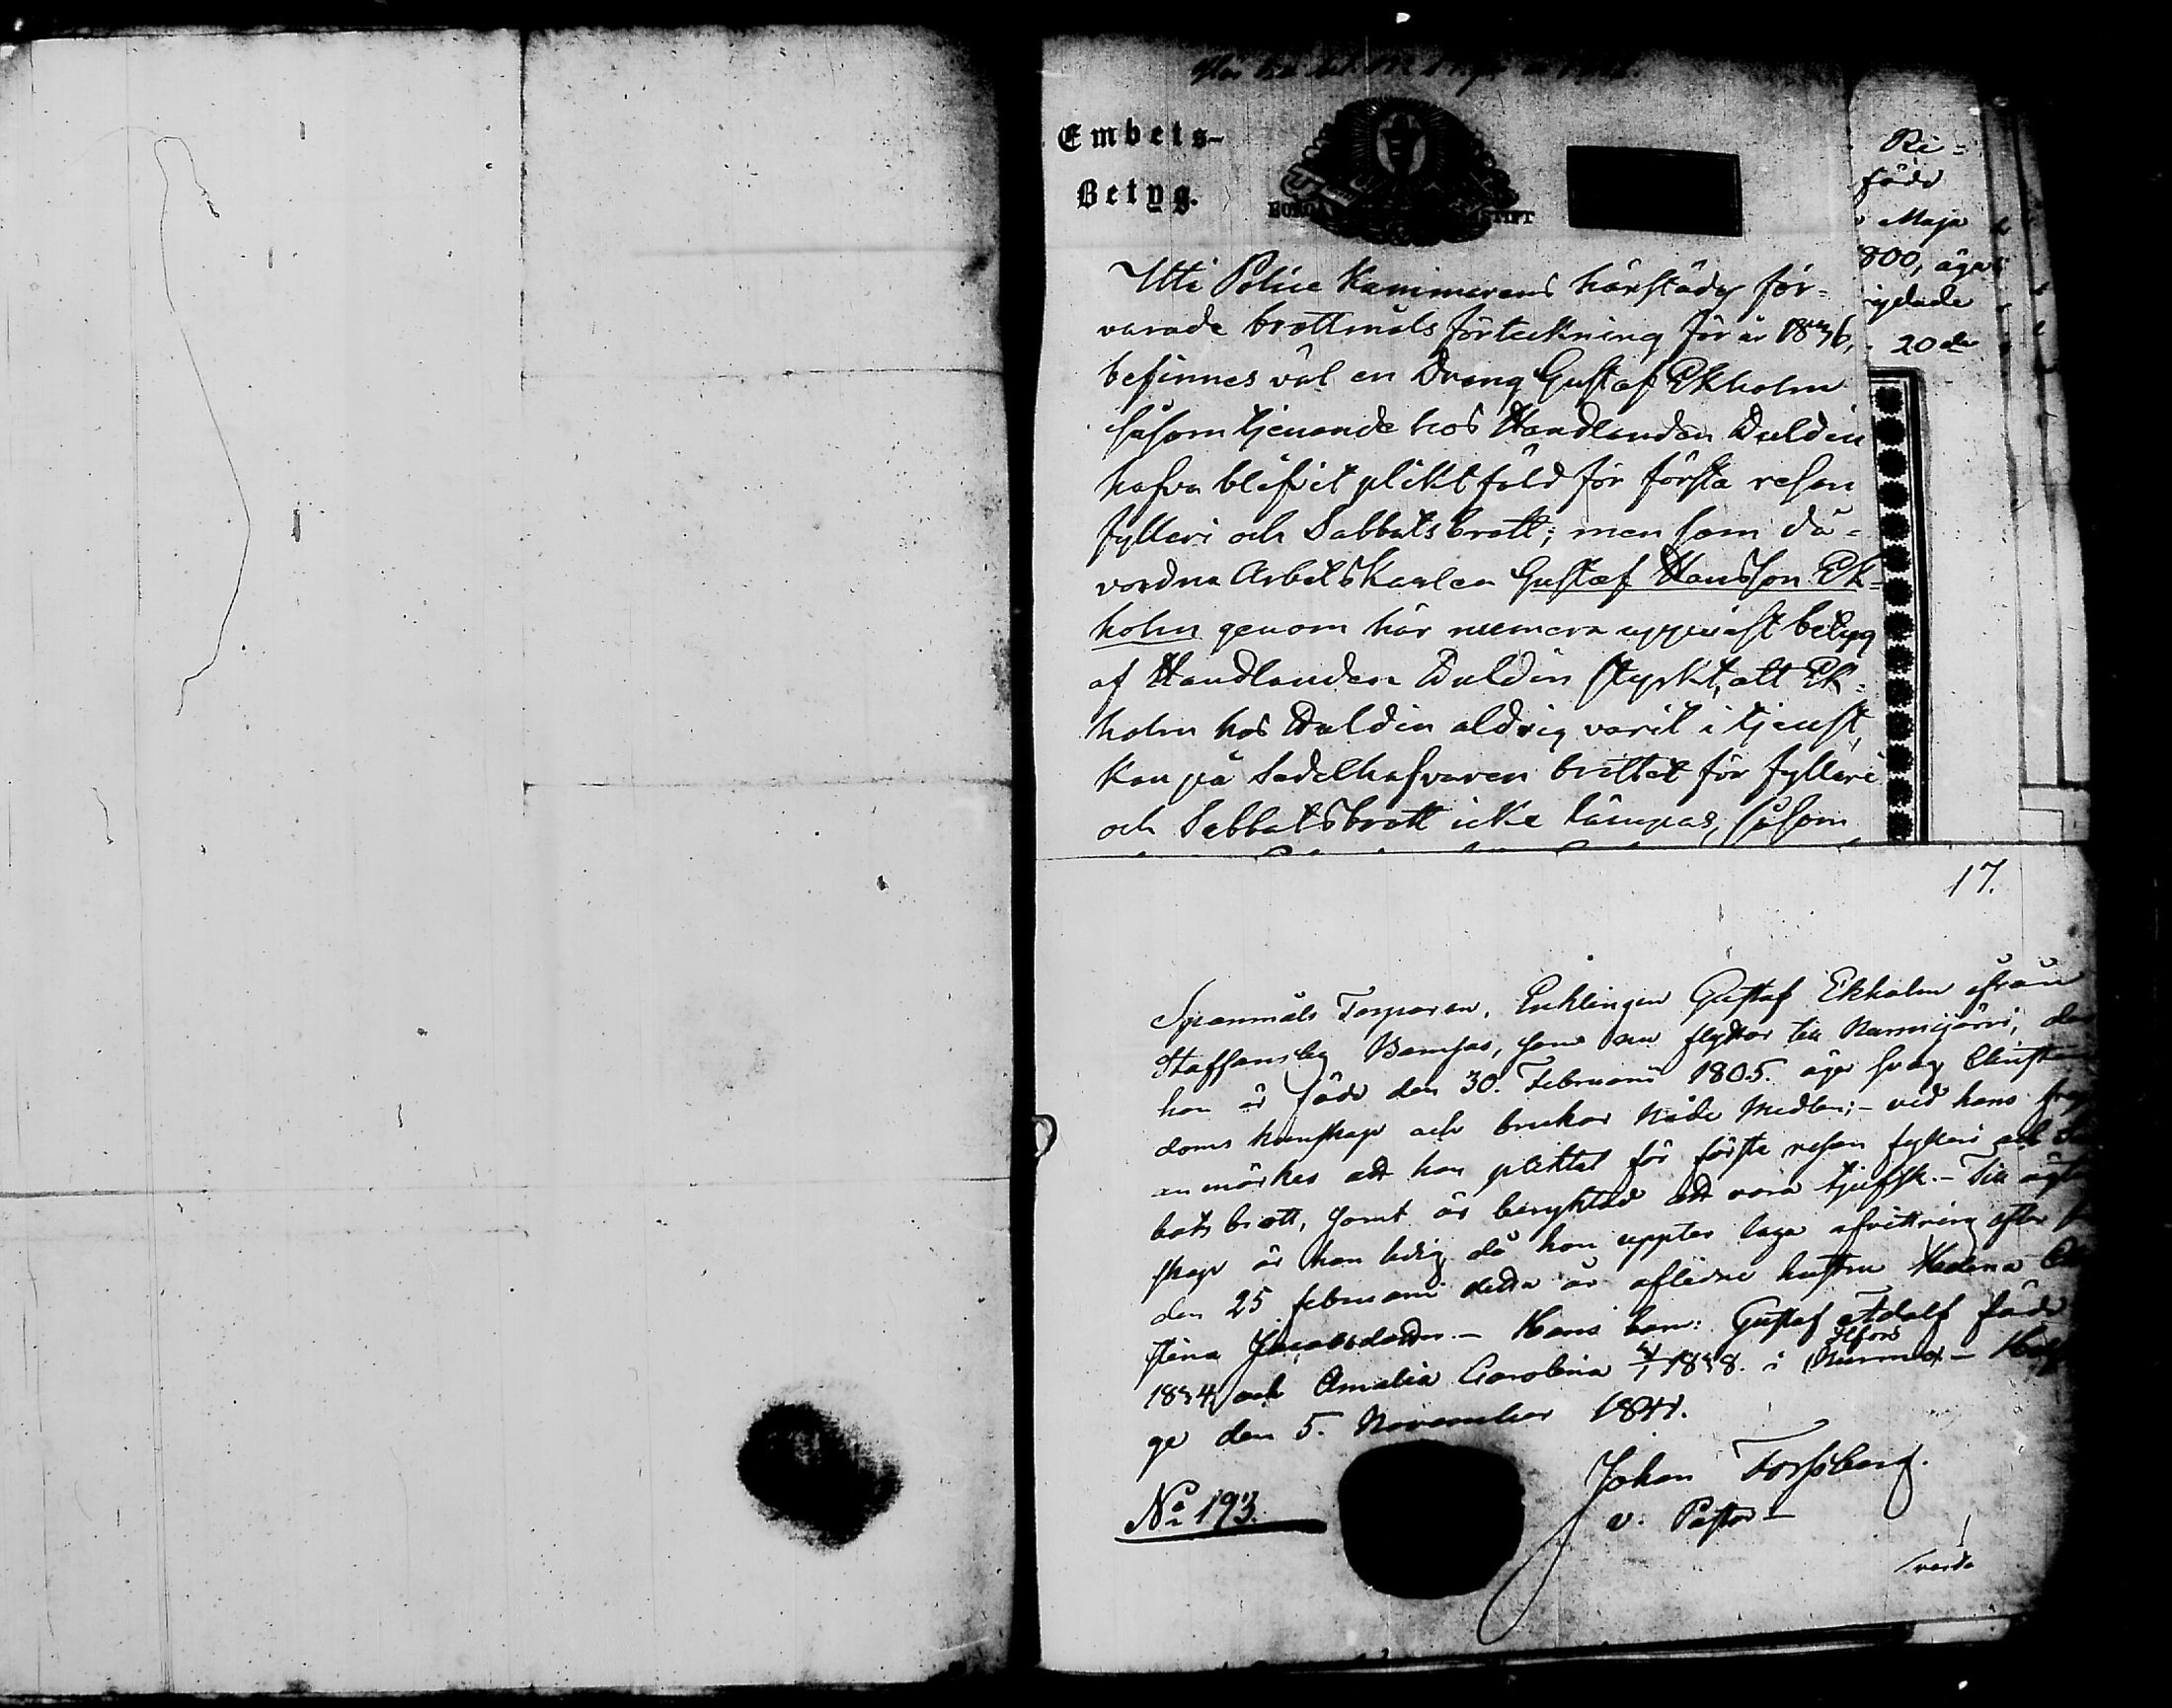 Embets-
Betyg.
BORGÅ STIFT
Uti Police Kammarens härstädes för-
varade brottmåls förteckning för år 1836,
befinnes väl en Dräng Gustaf Ekholm
såsom tjenande hos Handlanden Duldin
hafva blifvit pliktfäld för första resan
fylleri och Sabbatsbrott; men som då-
vordne Arbetskarlen Gustaf Hansson Ek-
holm genom här numera uppvist betyg
af Handlanden Duldin styrkt, att Ek-
holm hos Duldin aldrig varit i tjenst,
kan på Sedelhafvaren brottet för fylleri
och Sabbatsbrott icke lämpas, såsom
Ri-
född
Maja
1800, äger
20de
17.
Spanmåls Torparen, Enklingen Gustaf Ekholm ifrån
Staffansby som nu flyttar till Nurmijärvi, der
han är född den 30. Februarii 1805. äger svag Christen
doms kunskap och brukar Nåde Medlen;- vid hans frejd
anmärkes att han pliktat för första resan fylleri och Sab
bats brott, samt är beryktad att vara tjufsk.- Till ägten
skap är han ledig då han uppter laga afvittring efter sin
den 25 februarii detta år aflidne hustru Hedvina
Stina Jacobsdotter.- Hans barn: Gustaf Adolf född
Hfors
1834 och Amalia Carolina 1838. i Nurmis - Hel
ge den 5. November 1841.
Johan Forssberg.
v. Pastor
No 193.
vända